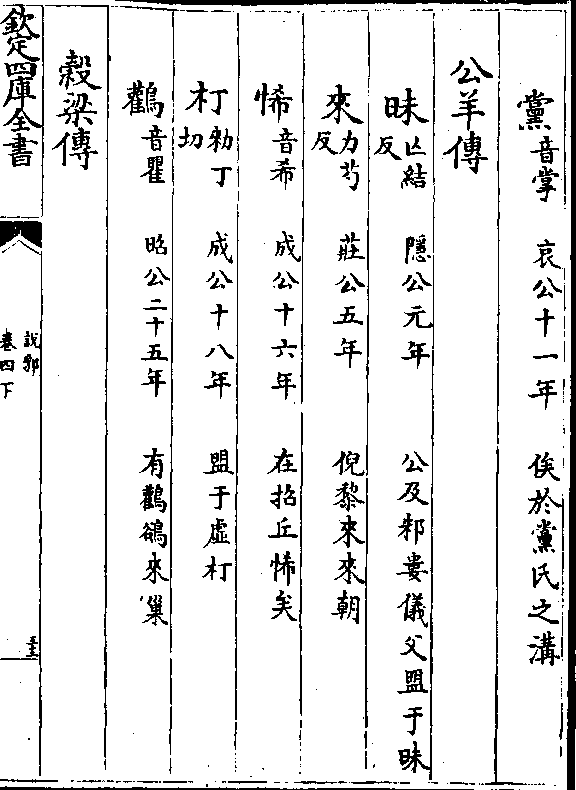 黨音掌 哀公十一年 俟於黨氏之溝
公羊傳
眛亾結反 隱公元年 公及邾婁儀父盟于眛
來力兮反 莊公五年 倪黎來來朝
悕音希 成公十六年 在招丘悕矣
朾勑丁切 成公十八年 盟于虛朾
鸛音瞿 昭公二十五年 有鸛鵒來巢
榖梁傳
欽定四庫全書
說郛
卷四下